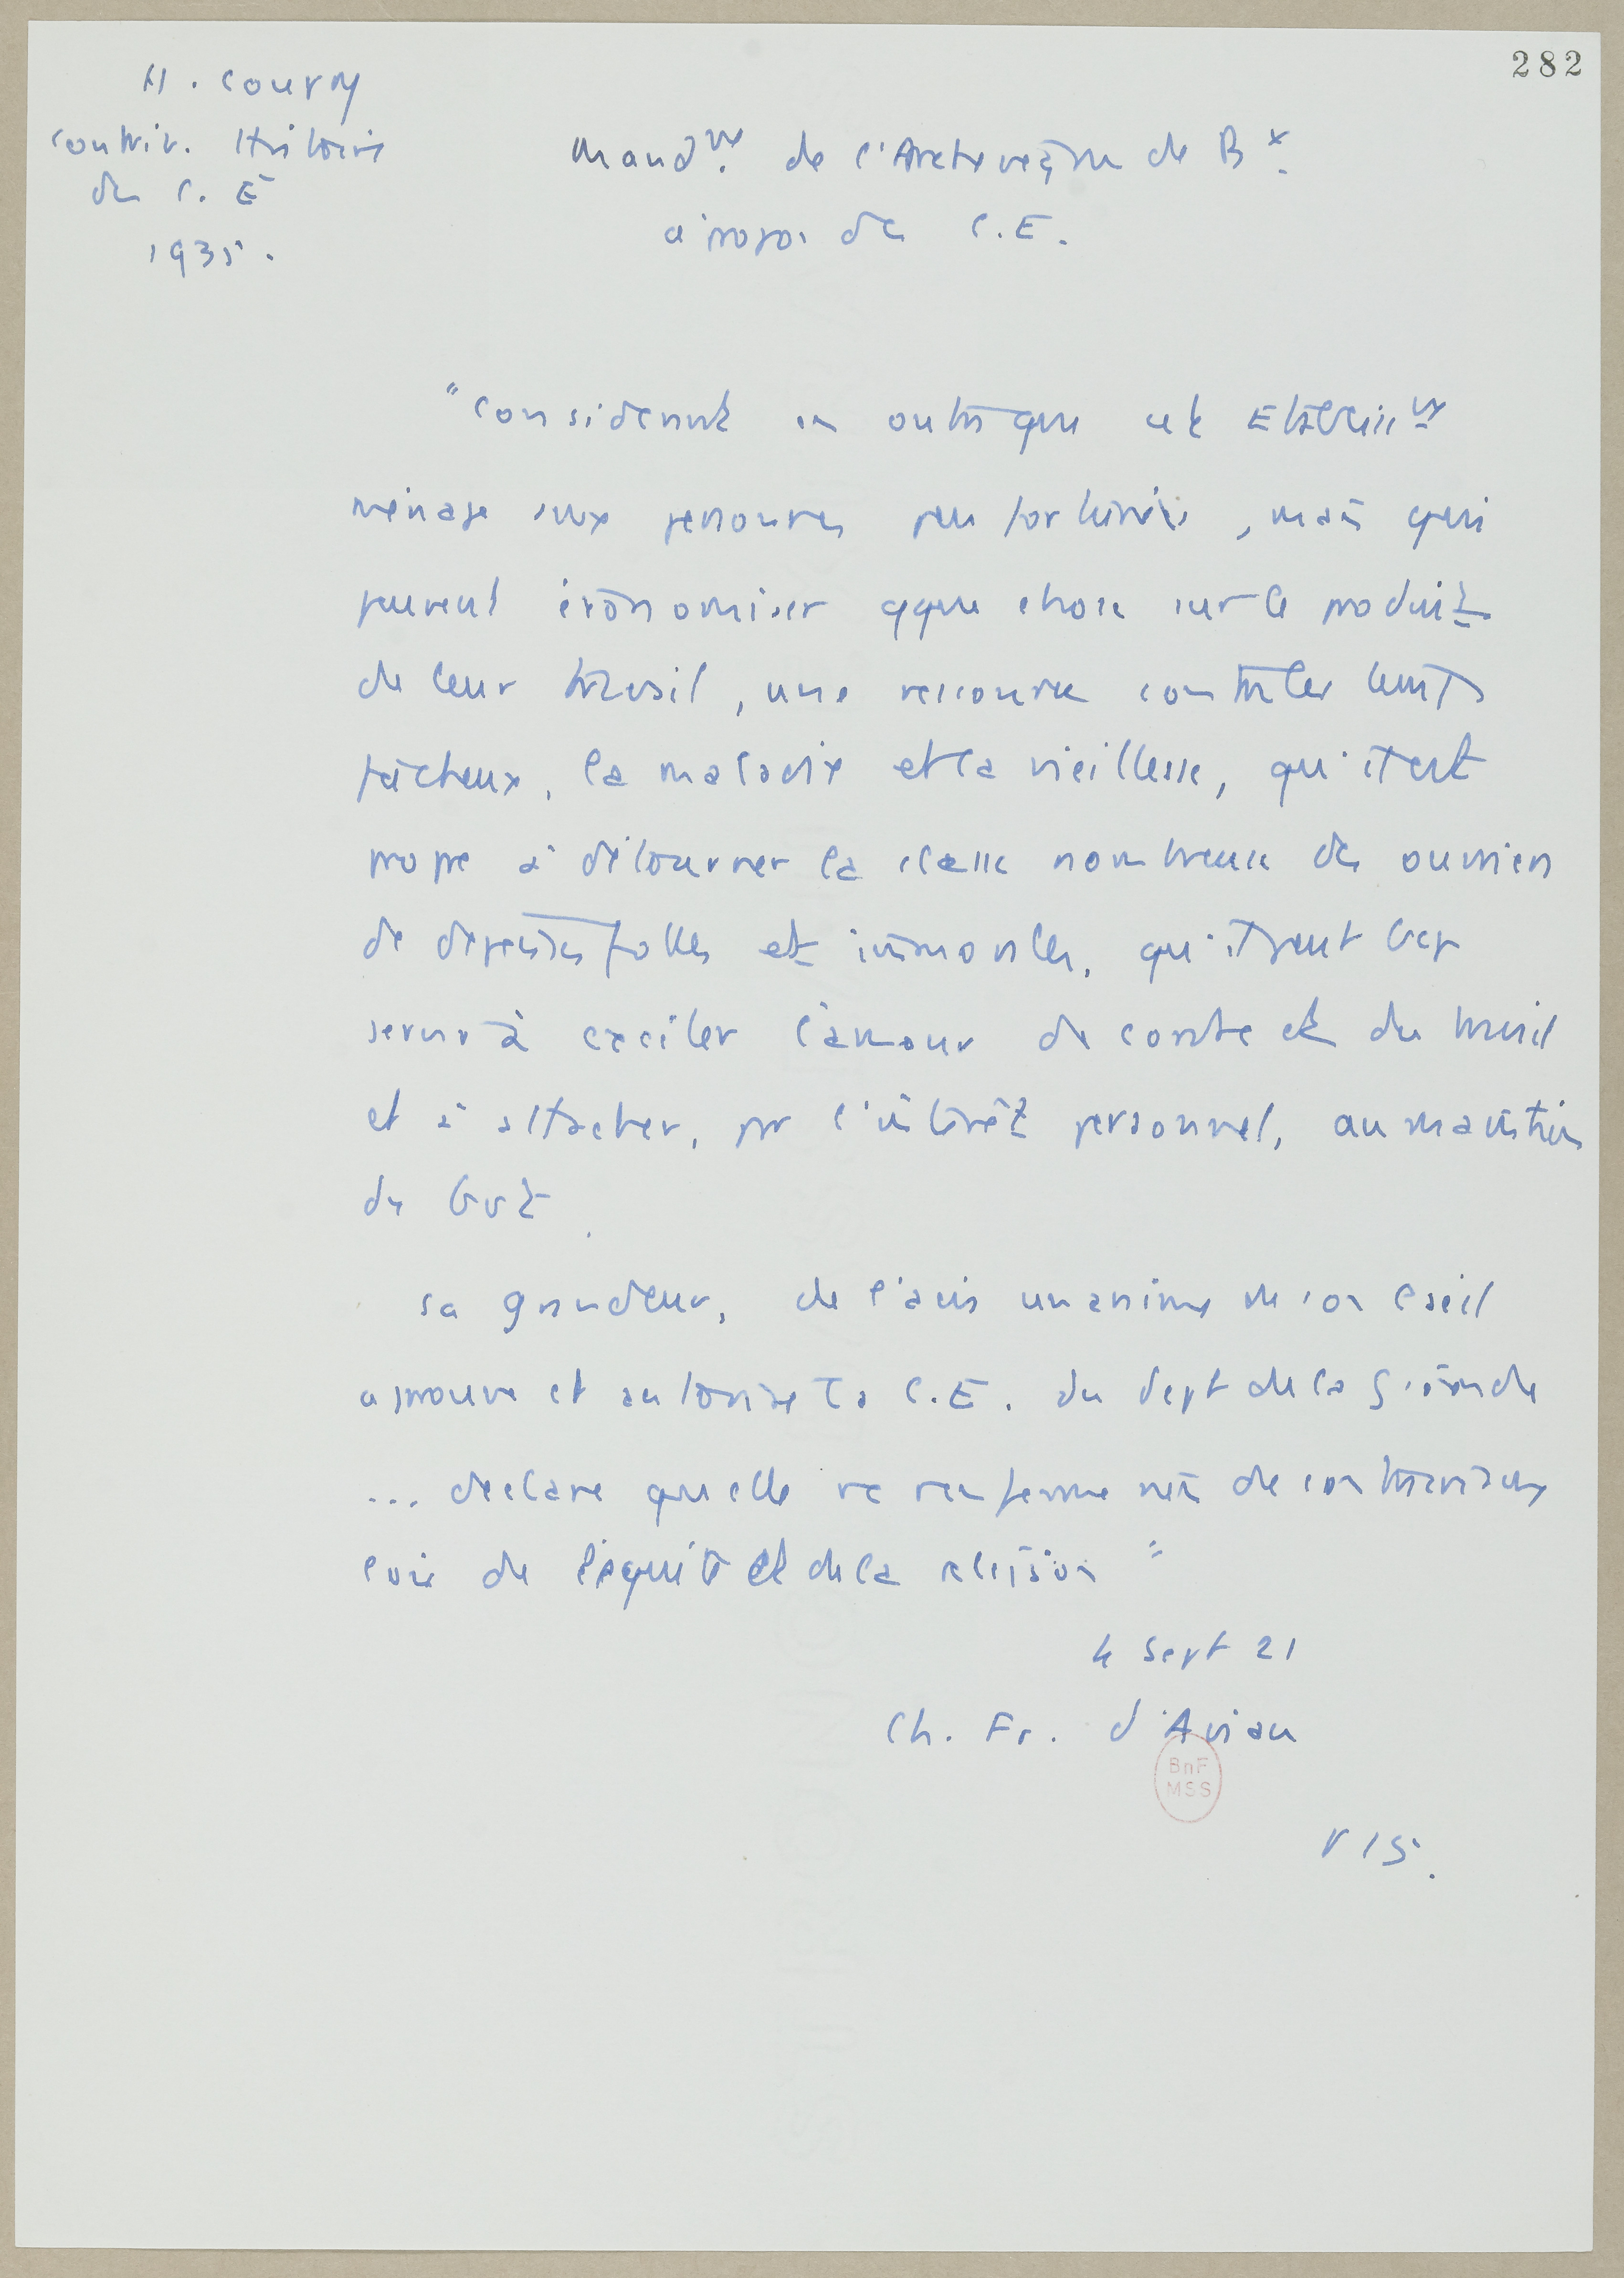 282
H. Courmy
contrib. Histoire
des C. E
1935.
Mand.nt de l'Archevêque de Bx.
à propos des C.E.
"Considérant en outre que cet Etabliss.nt
ménage aux personnes peu fortunées, mais qui
peuvent économiser qque chose sur le produit
de leur travail, une ressource contre les temps
fâcheux, la maladie et la vieillesse, qu'il est
propre à détourner la classe nombreuse des ouvriers
de dépenses folles et immorales, qu'il peut
servir à exciter l'amour de l'ordre et du travail
et à attacher, par l'intérêt personnel, au maintien
du Gvt.
Sa grandeur, de l'avis unanime de son Cseil
approuve et autorise la C.E. du Dept de la Gironde
... déclare qu'elle ne renferme rien de contraire aux
lois de l'équité et de la religion"
4 Sept 21
Ch. Fr. d'Aviau
BnF
MSS
P 15.